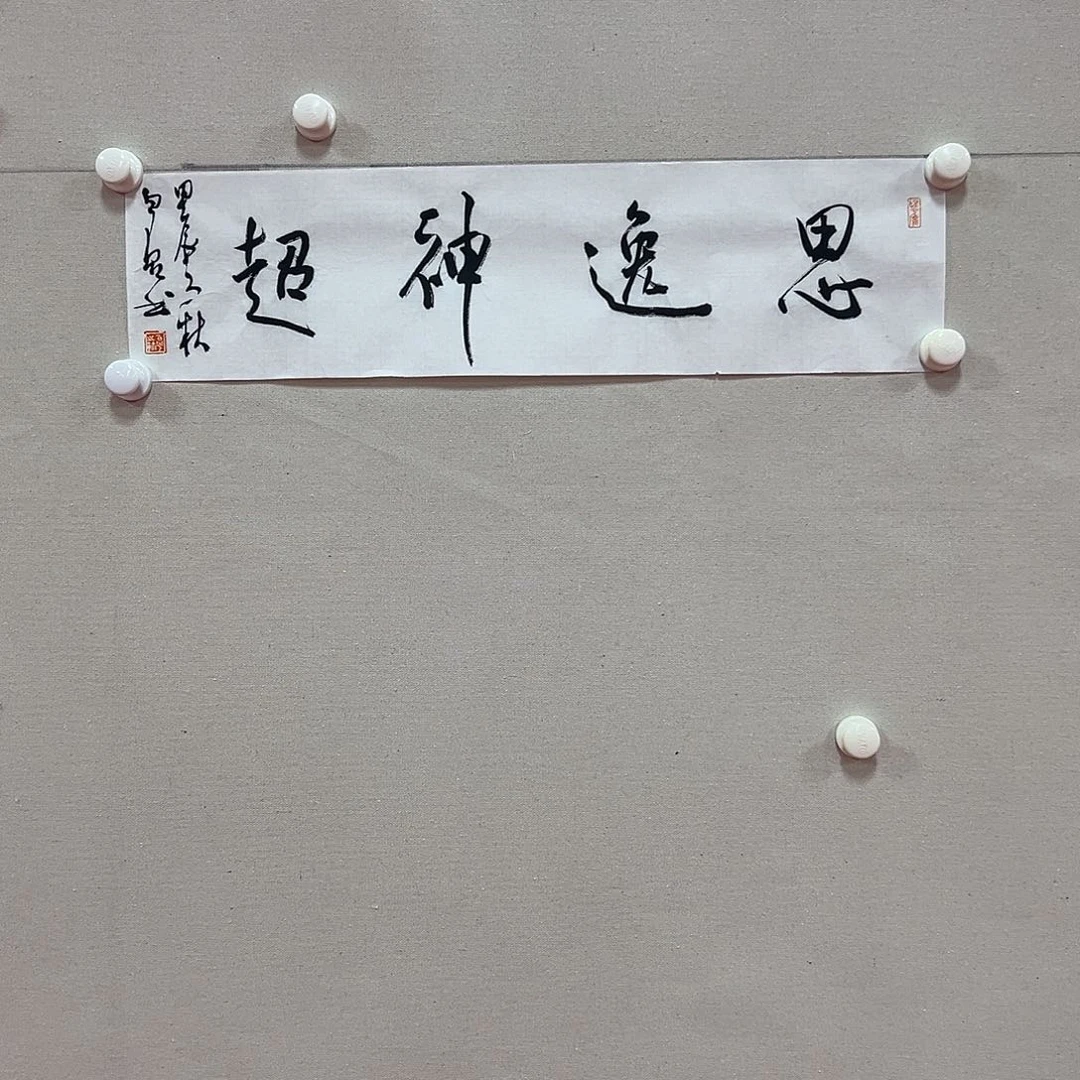 思逸神超
甲辰之秋